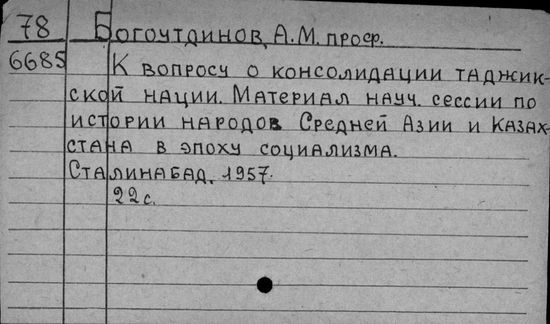 78 Богоутдинов, А.М. проф.
6685 К вопросу о консолидации таджик-
ской нации. Материал науч. сессии по
истории народов Средней Азии и Казах-
стана в эпоху социализма.
Сталинабад, 1957.
22 с.